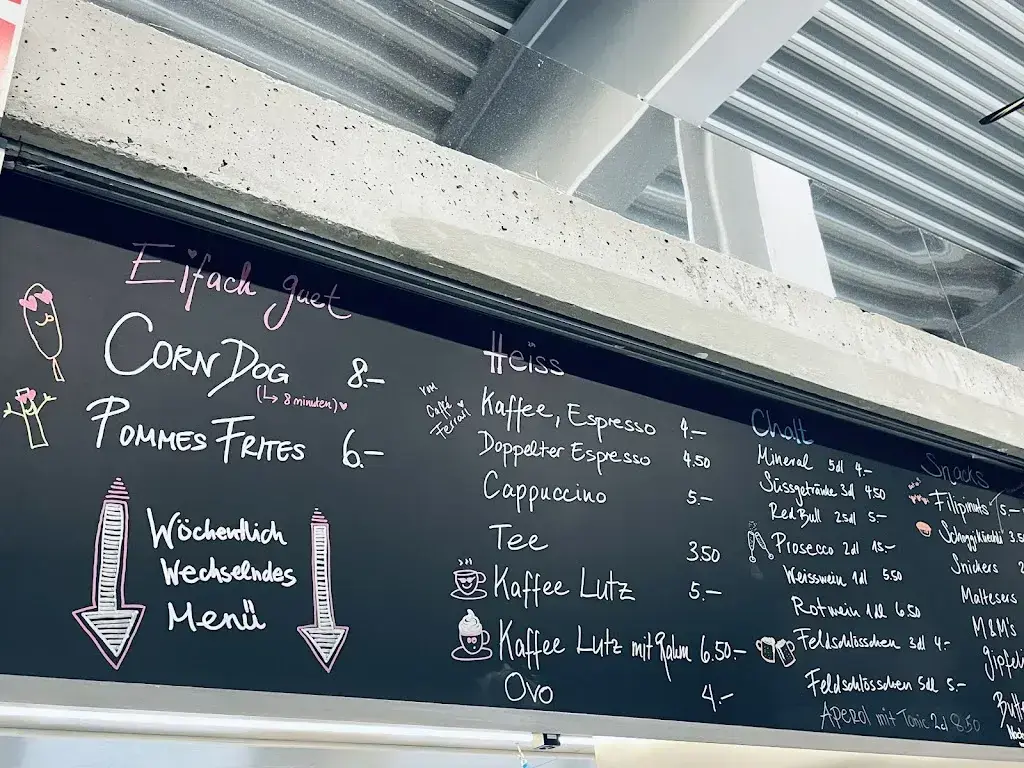 Eifach guet
Corn Dog 8.–
(↳ 8 minuten) ♥
Pommes Frites 6.–
Wöchentlich
Wechselndes
Menü
Heiss
vom
Café
Ferrari
Kaffee, Espresso 4.–
Doppelter Espresso 4.50
Cappuccino 5.–
Tee 3.50
Kaffee Lutz 5.–
Kaffee Lutz mit Rahm 6.50.–
Ovo 4.–
Chalt
Mineral 5dl 4.–
Süssgetränke 3dl 4.50
Red Bull 25dl 5.–
Prosecco 2dl 15.–
Weisswein 1dl 5.50
Rotwein 1dl 6.50
Feldschlösschen 3dl 4.–
Feldschlösschen 5dl 5.–
Aperol mit Tonic 2dl 8.50
Snacks
5.–
3.5
Snickers
Maltesers
M&M's